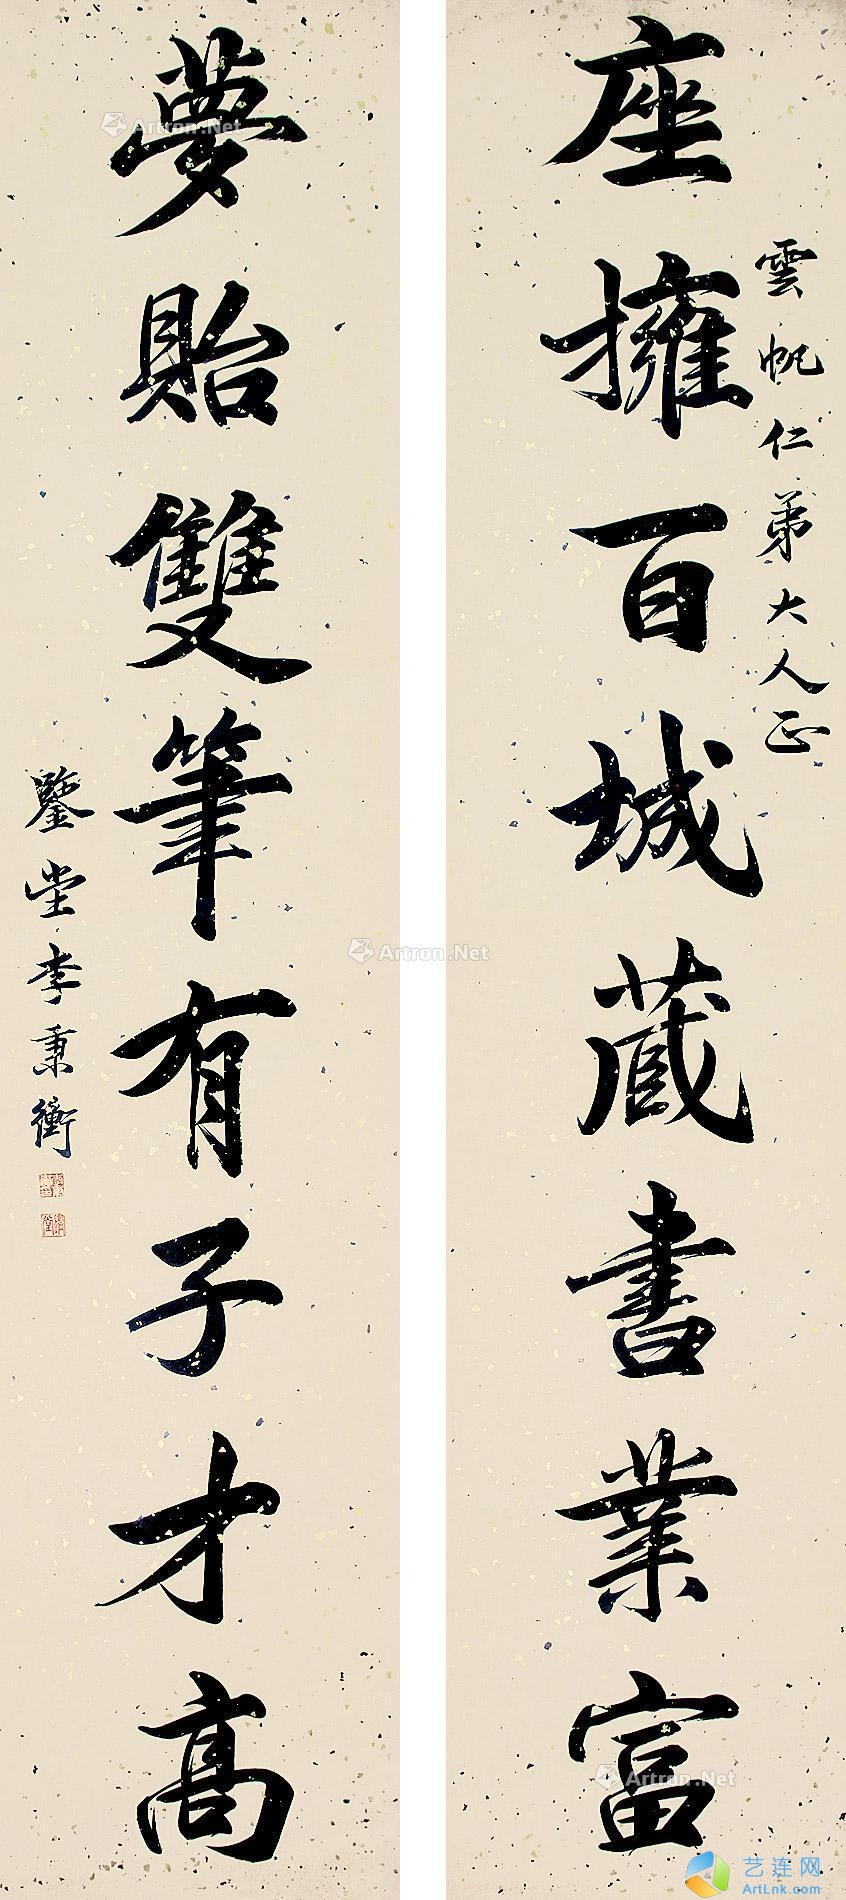 雲帆仁弟大人正
座擁百城藏書業富
夢貽雙筆有子才高
鑒堂李秉衡
Artron.Net
Artron.Net
Artron.Net
艺连网
ArtLnk.com